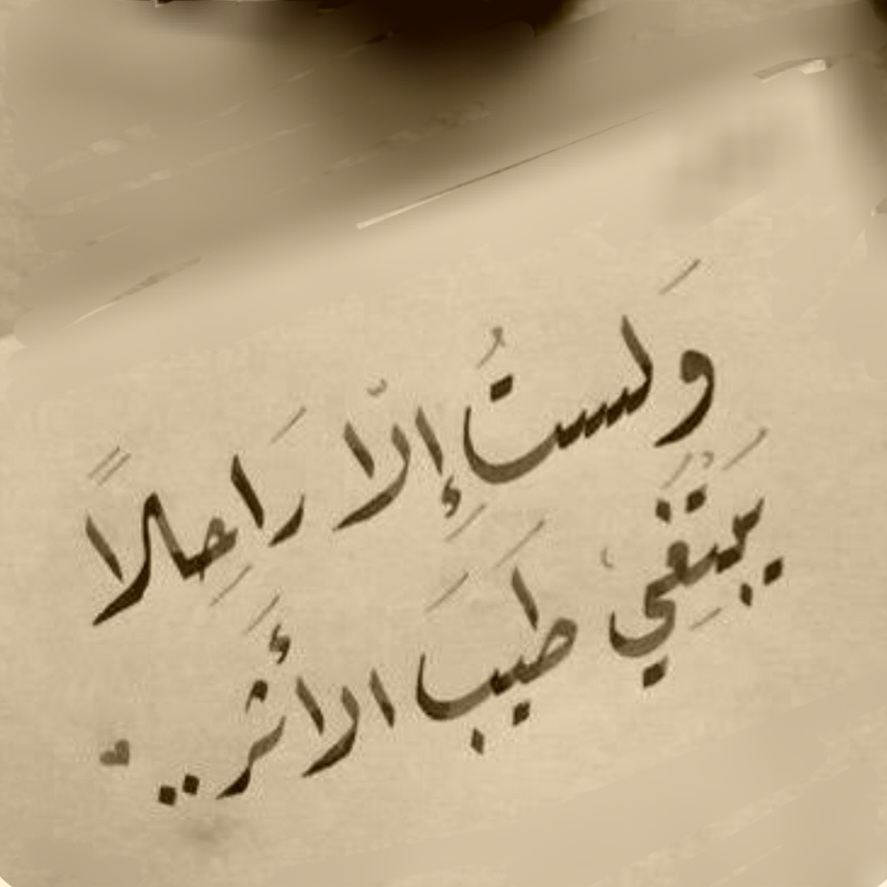 وَلستُ إِلّا رَاحِلاً
يَبتَغِي طَيبَ الأَثر..